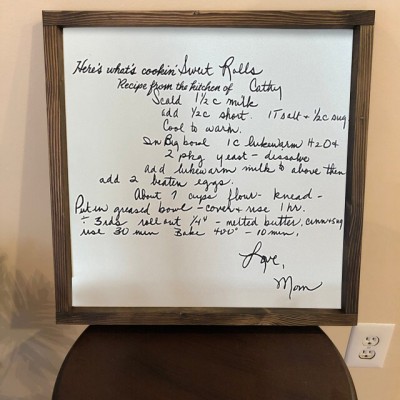 Here's what's cookin' Sweet Rolls
Recipe from the kitchen of Cathy
Scald 1 1/2 c milk
add 1/2 c short. 1T salt + 1/2 c sug
Cool to warm.
In Big bowl 1 C lukewarm H2O +
2 pkg yeast - dissolve
add lukewarm milk to above then
add 2 beaten eggs.
About 7 cups flour - knead -
Put in greased bowl - cover + rise 1 hr.
÷ 3rds roll out 1/4" - melted butter, cinn + sug
rise 30 min Bake 400° - 10 min.
Love,
Mom